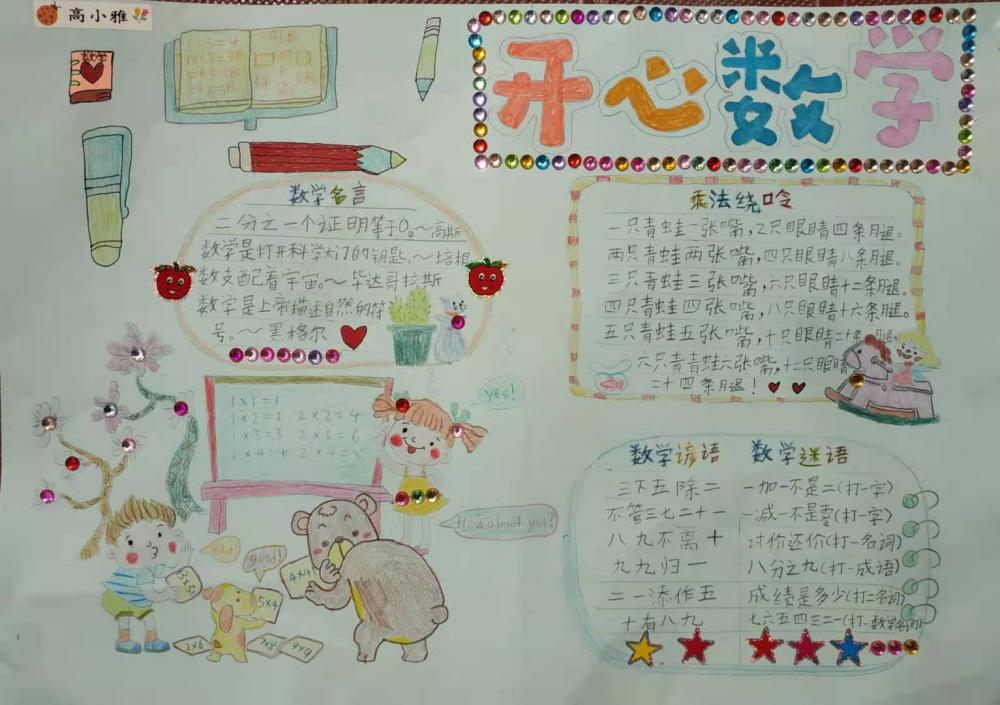 高小雅
开心数学
数学
周长
数学名言
二分之一个证明等于0。~高斯
数学是打开科学大门的钥匙。~培根
数支配着宇宙。~毕达哥拉斯
数学是上帝描述自然的符
号。~黑格尔
乘法绕口令
一只青蛙一张嘴,2只眼睛四条腿。
两只青蛙两张嘴,四只眼睛八条腿。
三只青蛙三张嘴,六只眼睛十二条腿。
四只青蛙四张嘴,八只眼睛十六条腿。
五只青蛙五张嘴,十只眼睛二十条腿。
六只青青蛙六张嘴,十二只眼睛
二十四条腿!
1×1=1
1×2=2 2×2=4
1×3=3 2×3=6
1×4=4 2×4=8
yes!
How about you?
good!
3×5
4×4
5×4
2×6
7×8
9×9
数学谚语 数学迷语
三下五除二 一加一不是二(打一字)
不管三七二十一 一减一不是零(打一字)
八九不离十 讨价还价(打一名词)
九九归一 八分之九(打一成语)
二一添作五 成绩是多少(打二名词)
十有八九 七六五四三二一(打一数学名词)